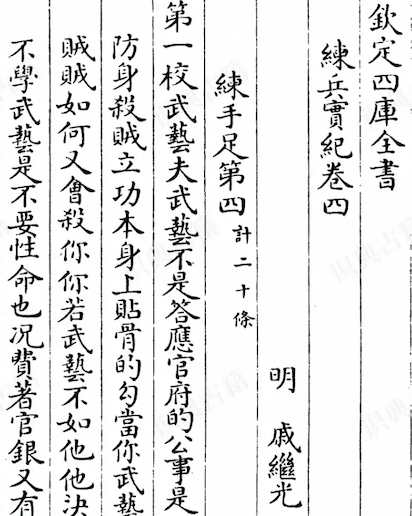 欽定四庫全書
練兵實紀卷四
明 戚繼光
練手足第四計二十條
第一校武藝夫武藝不是答應官府的公事是
防身殺賊立功本身上貼骨的勾當你武藝
賊賊如何又會殺你你若武藝不如他他決
不學武藝是不要性命也况費著官銀又有